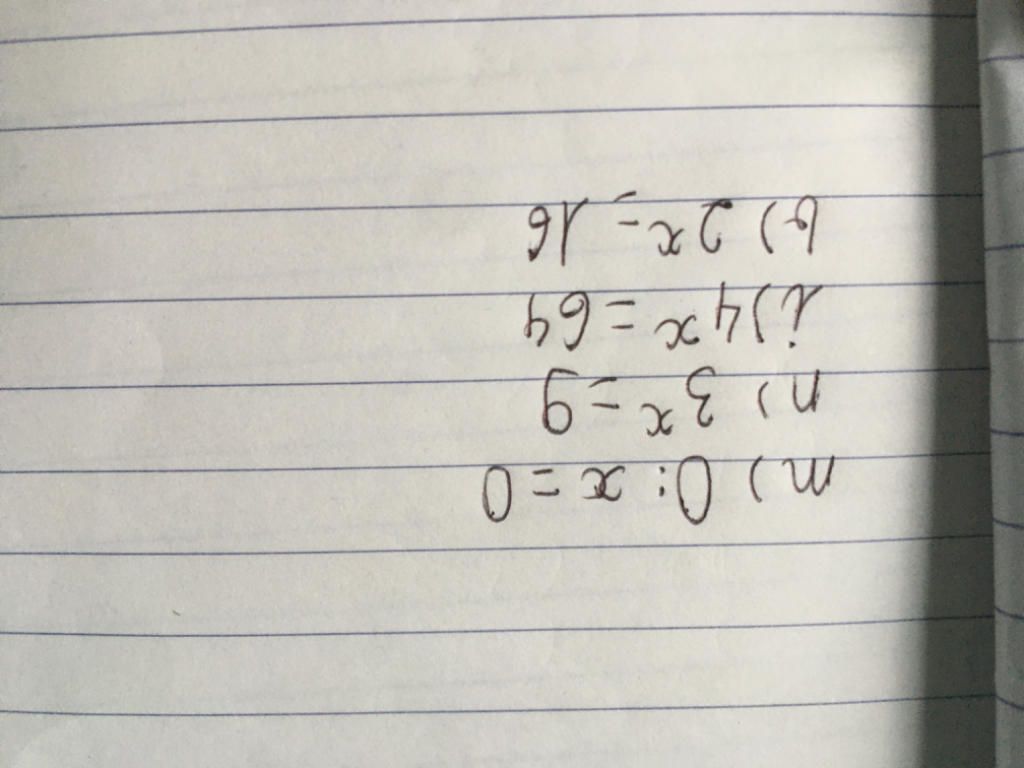 m) 0 : x = 0
n) 3x = 9
i) 4x = 64
b) 2x = 16